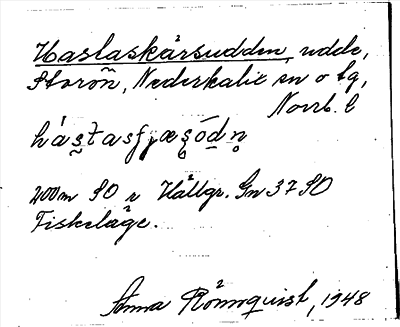 Haslaskärsudden, udde,
Storön, Nederkalix sn o tg,
Norrb. l
200m SO r Hällgr. Gn 37 SO
Fiskeläge.
Anna Rönnquist, 1948